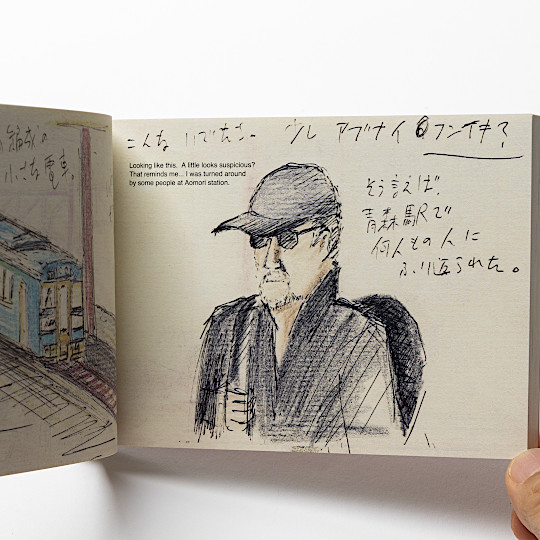 編成の
小さな電車!
こんな いでたち。 少し アブナイ フンイキ?
Looking like this. A little looks suspicious?
That reminds me... I was turned around
by some people at Aomori station.
そう言えば、
青森駅で
何人もの人に
ふり返られた。